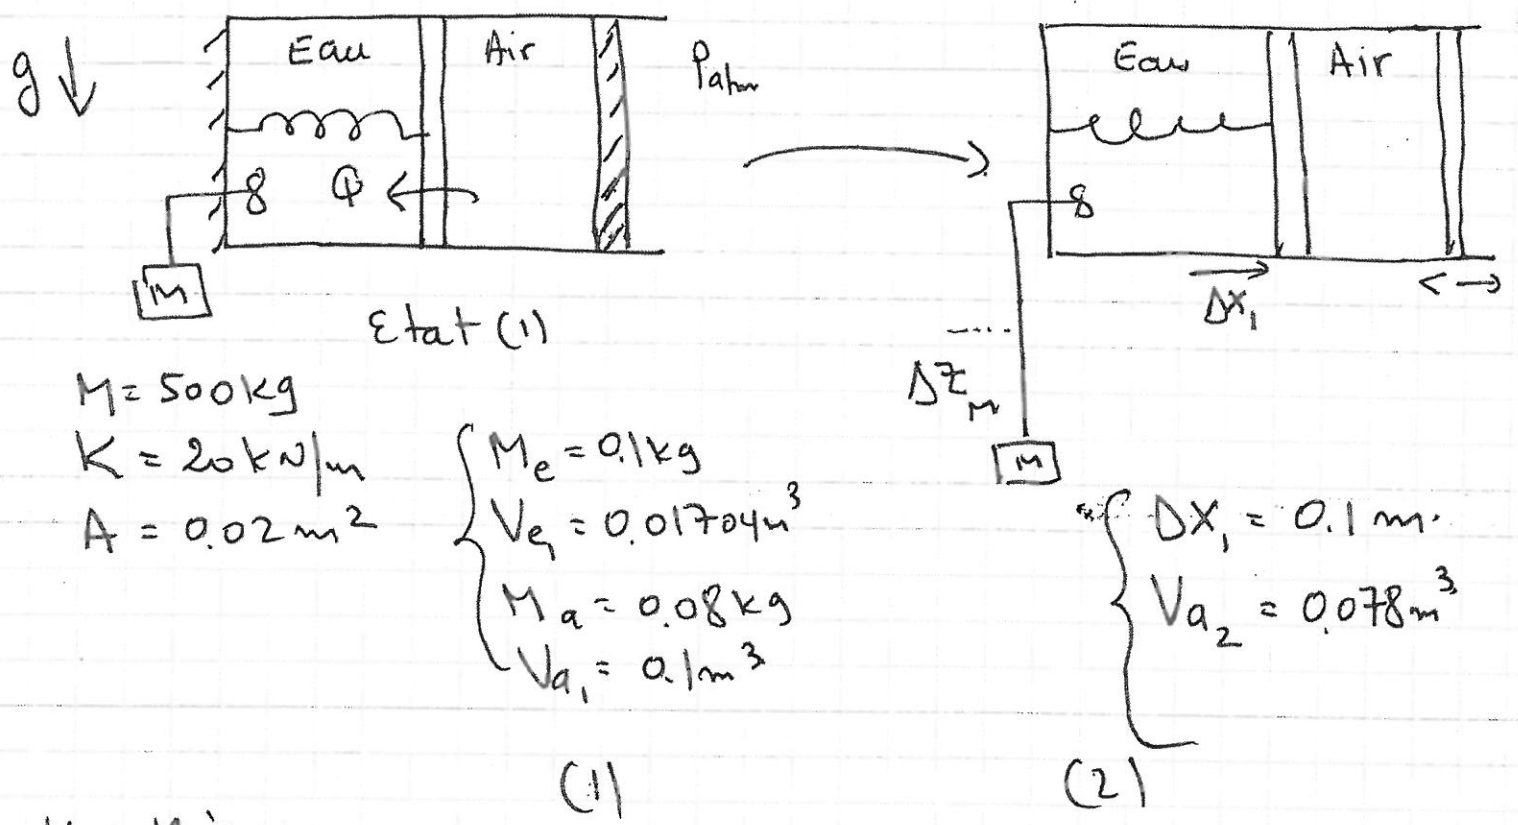 g Eau Air Patm Eau Air
Q
M
Etat (1)
ΔX₁
ΔZ_M
M
M = 500 kg
K = 20 kN/m
A = 0.02 m²
Me = 0.1 kg
Ve₁ = 0.01704 m³
Ma = 0.08 kg
Va₁ = 0.1 m³
ΔX₁ = 0.1 m.
Va₂ = 0.078 m³
(1) (2)